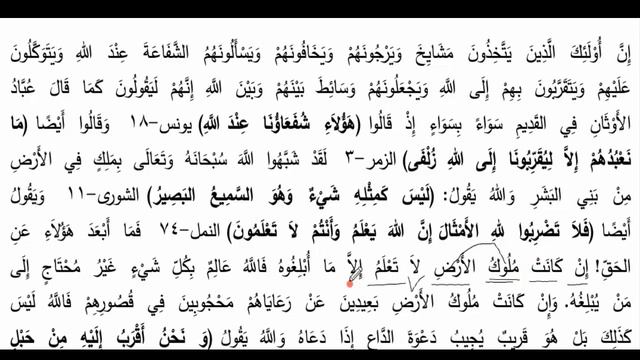 إِنَّ أُوْلَئِكَ الَّذِينَ يَتَّخِذُونَ مَشَايِخَ وَيَرْجُونَهُمْ وَيَخَافُونَهُمْ وَيَسْأَلُونَهُمُ الشَّفَاعَةَ عِنْدَ اللهِ وَيَتَوَكَّلُونَ
عَلَيْهِمْ وَيَتَقَرَّبُونَ بِهِمْ إِلَى اللَّهِ وَيَجْعَلُونَهُمْ وَسَائِطَ بَيْنَهُمْ وَبَيْنَ اللَّهِ إِنَّهُمْ لَيَقُولُونَ كَمَا قَالَ عُبَّادُ
الأَوْثَانِ فِي القَدِيمِ سَوَاءً بِسَوَاءٍ إِذْ قَالُوا (هَؤُلاَءِ شُفَعَاؤُنَا عِنْدَ اللَّهِ) يونس-١٨ وَقَالُوا أَيْضًا (مَا
نَعْبُدُهُمْ إِلاَّ لِيُقَرِّبُونَا إِلَى اللهِ زُلْفَى) الزمر-٣ لَقَدْ شَبَّهُوا اللَّهَ سُبْحَانَهُ وَتَعَالَى بِمَلِكٍ فِي الأَرْضِ
مِنْ بَنِي البَشَرِ وَاللهُ يَقُولُ: (لَيْسَ كَمِثْلِهِ شَيْءٌ وَهُوَ السَّمِيعُ البَصِيرُ) الشورى-١١ وَيَقُولُ
أَيْضًا (فَلاَ تَضْرِبُوا لِلهِ الأَمْثَالَ إِنَّ اللهَ يَعْلَمُ وَأَنْتُمْ لاَ تَعْلَمُونَ) النمل-٧٤ فَمَا أَبْعَدَ هَؤُلاَءِ عَنِ
الحَقِّ! إِنْ كَانَتْ مُلُوكُ الأَرْضِ لاَ تَعْلَمُ إِلاَّ مَا أُبْلِغُوهُ فَاللَّهُ عَالِمٌ بِكُلِّ شَيْءٍ غَيْرُ مُحْتَاجٍ إِلَى
مَنْ يُبْلِغُهُ. وَإِنْ كَانَتْ مُلُوكُ الأَرْضِ بَعِيدِينَ عَنْ رَعَايَاهُمْ مَحْجُوبِينَ فِي قُصُورِهِمْ فَاللَّهُ لَيْسَ
كَذَلِكَ بَلْ هُوَ قَرِيبٌ يُجِيبُ دَعْوَةَ الدَّاعِ إِذَا دَعَاهُ وَاللَّهُ يَقُولُ (وَ نَحْنُ أَقْرَبُ إِلَيْهِ مِنْ حَبْلِ